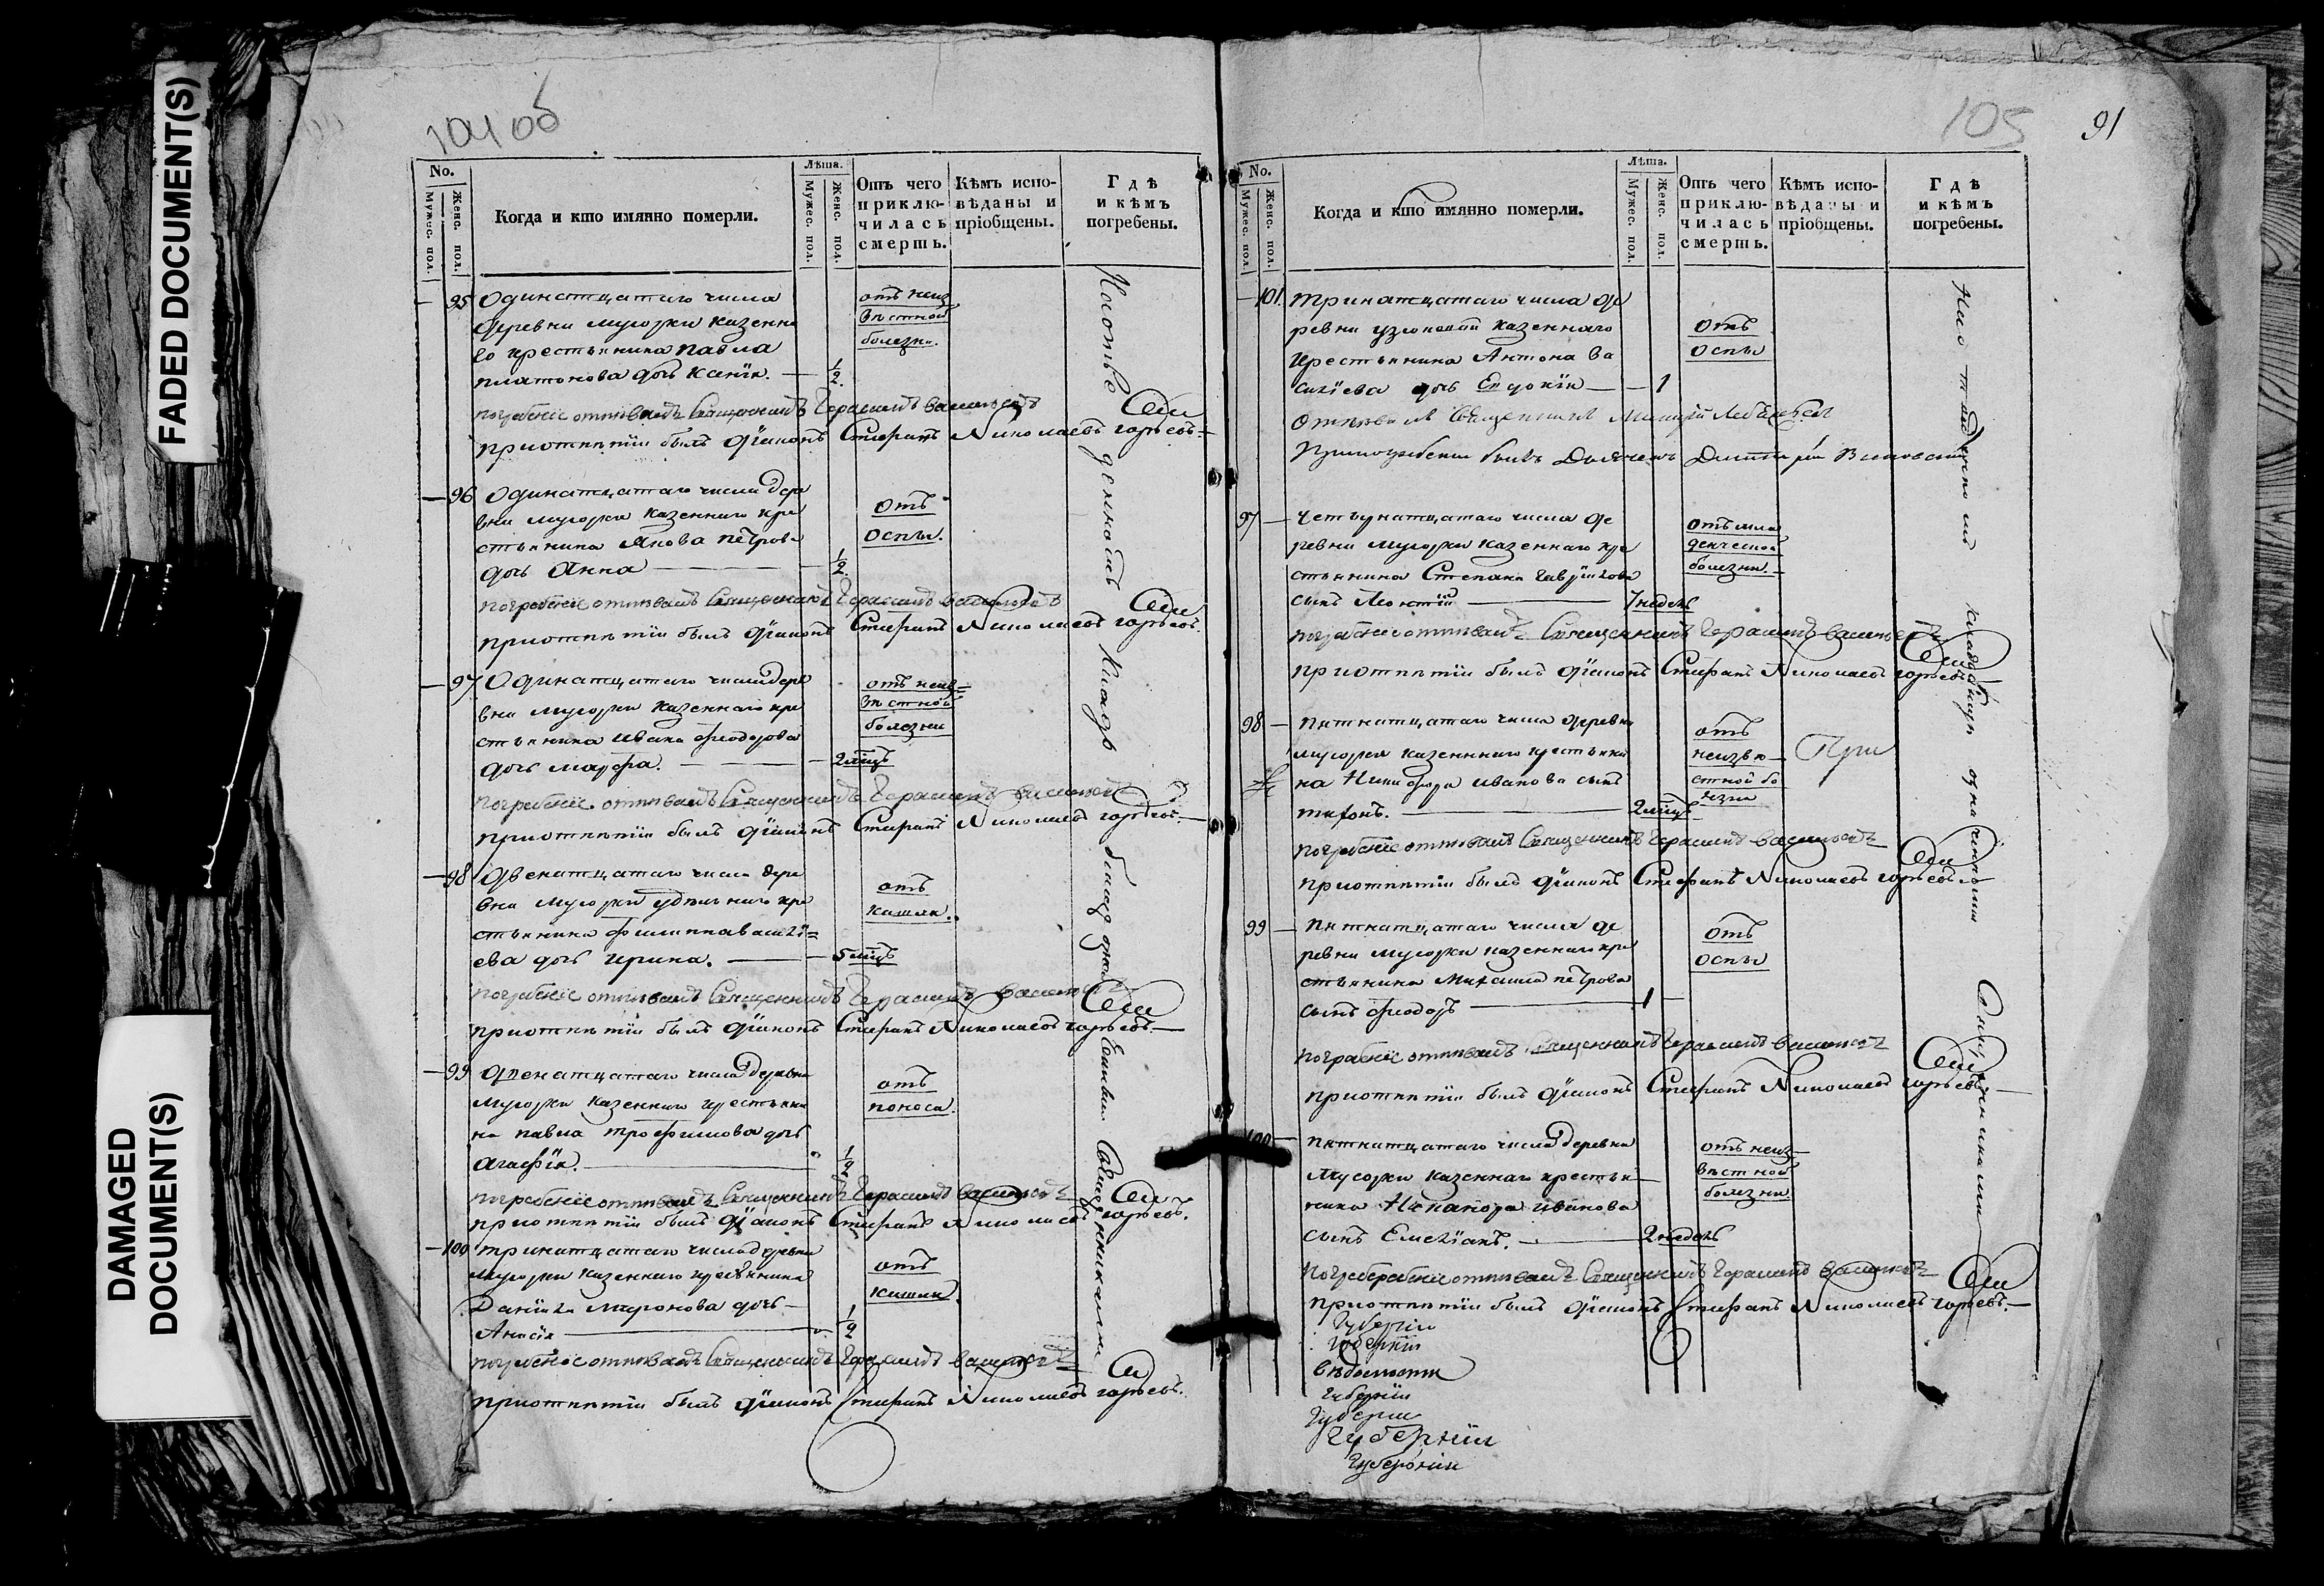 FADED DOCUMENT(S)
DAMAGED DOCUMENT(S)
104 об
No.
Мужес. пол.
Женс. пол.
Когда и кто имянно померли.
Лѣта.
Мужес. пол.
Женс. пол.
Отъ чего приключилась смерть.
Кѣмъ исповѣданы и пріобщены.
Гдѣ и кѣмъ погребены.
— 95 Одинатцатаго числа
деревни мусорки казенна
го крестьянина павла
платонова дочь Ксенія. — 1/2.
отъ неиз
вѣстной
болезни.
погребеніе отпѣвалъ Священникъ Герасимъ васильевъ
приотпѣтіи былъ дїаконъ Стефанъ Николаевъ горѣевъ.—
— 96 Одинатцатаго числа дере
вни мусорки казеннаго кре
стьянина Якова петрова
дочь Анна — 1/2
отъ
оспы.
погребеніе отпѣвалъ Священникъ Герасимъ васильевъ
приотпѣтіи былъ дїаконъ Стефанъ Николаевъ горѣевъ.
— 97 Одинатцатаго числа дере
вни мусорки казеннаго кре
стьянина ивана феодорова
дочь марфа. — 2 мѣсцъ
отъ неиз=
вѣстной
болезни
погребеніе отпѣвалъ Священникъ Герасимъ васильевъ
приотпѣтіи былъ дїаконъ Стефанъ Николаевъ горѣевъ.—
— 98 двенатцатаго числа дере
вни мусорки удѣльнаго кре
стьянина филиппа василї=
ева дочь ирина. — 5 мѣсцъ
отъ
кашля.
погребеніе отпѣвалъ Священникъ Герасимъ васильевъ
приотпѣтіи былъ дїаконъ Стефанъ Николаевъ горѣевъ.—
— 99 двенатцатаго числа деревни
мусорки казеннаго крестьяни
на павла трофимова дочь
агафїя. — 1/2
отъ
поноса.
погребеніе отпѣвалъ Священникъ Герасимъ васильевъ
приотпѣтіи былъ дїаконъ Стефанъ Николаевъ горѣевъ.
— 100 тринатцатаго числа деревни
мусорки казеннаго крестьянина
Данїила миронова дочь —
Анисїя — 1/2
отъ
кашля.
погребеніе отпѣвалъ Священникъ Герасимъ васильевъ
приотпѣтіи былъ дїаконъ Стефанъ Николаевъ горѣевъ.
Священниками
105
91
No.
Мужес. пол.
Женс. пол.
Когда и кто имянно померли.
Лѣта.
Мужес. пол.
Женс. пол.
Отъ чего приключилась смерть.
Кѣмъ исповѣданы и пріобщены.
Гдѣ и кѣмъ погребены.
— 101. тринатцатаго числа де
ревни узюковой казеннаго
крестьянина Антона Ва
силїева дочь Евдокїя — — 1
отъ
оспы
Отпѣвалъ Священникъ
Припогребеніи былъ Дьячекъ Дмитрій
97 — четырнатцатаго числа де
ревни мусорки казеннаго кре
стьянина Степана гаврїилова
сынъ Леонтїй — 7 недель
отъ мла
денческой
болезни.—
погребеніе отпѣвалъ Священникъ Герасимъ васильевъ
приотпѣтіи былъ дїаконъ Стефанъ Николаевъ горѣевъ
98 — пятнатцатаго числа деревни
мусорки казеннаго крестьяни
на Никифора иванова сынъ
тифонъ. — 2 мѣсцъ
отъ
неизвѣ—
стной бо
лезни
При
погребеніе отпѣвалъ Священникъ Герасимъ васильевъ
приотпѣтіи былъ дїаконъ Стефанъ Николаевъ горѣевъ.—
99 — пятнатцатаго числа де
ревни мусорки казеннаго кре
стьянина Михаила петрова
сынъ феодоръ — 1 —
отъ
оспы
погребеніе отпѣвалъ Священникъ Герасимъ васильевъ
приотпѣтіи былъ дїаконъ Стефанъ Николаевъ горѣевъ.—
100 — пятнатцатаго числа деревни
мусорки казеннаго крестьян—
нина Никанора иванова
сынъ Емелїанъ. — 2 недель
отъ неиз—
вѣстной
болезни
погреберебніе отпѣвалъ Священникъ Герасимъ васильевъ
приотпѣтіи былъ дїаконъ Стефанъ Николаевъ горѣевъ.—
Губерніи
губерніи
вѣдомости
губерніи
Губерніи
губерніи
губерніи
Священниками